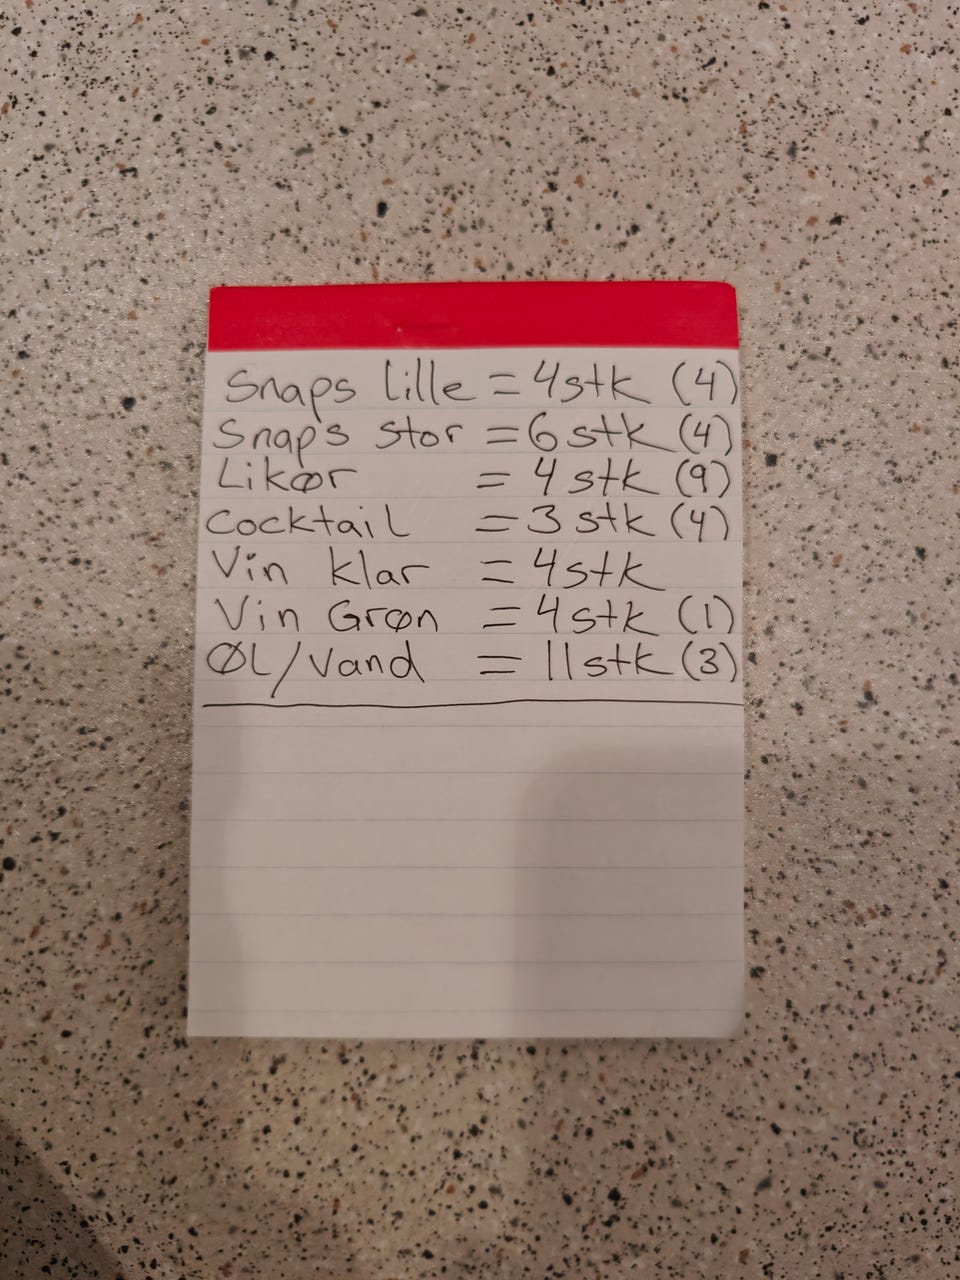 Snaps lille = 4stk (4)
Snaps stor = 6stk (4)
Likør = 4 stk (9)
Cocktail = 3 stk (4)
Vin klar = 4stk
Vin Grøn = 4stk (1)
ØL/Vand = 11stk (3)